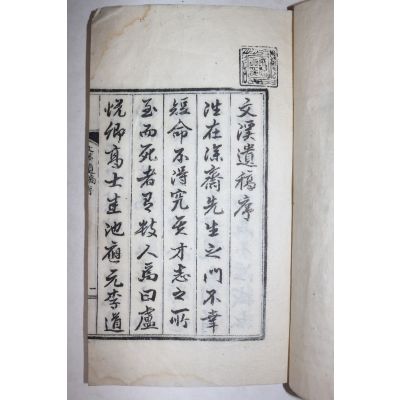 文溪遺稿序
往在深齋先生之門不幸
短命不得究其才志之所
至而死者有數人焉曰盧
悅卿高士生池應元李道